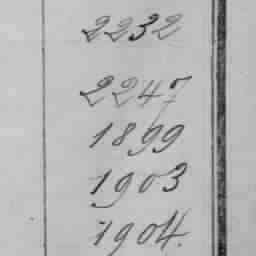 2232
2247
1899
1903
1904.